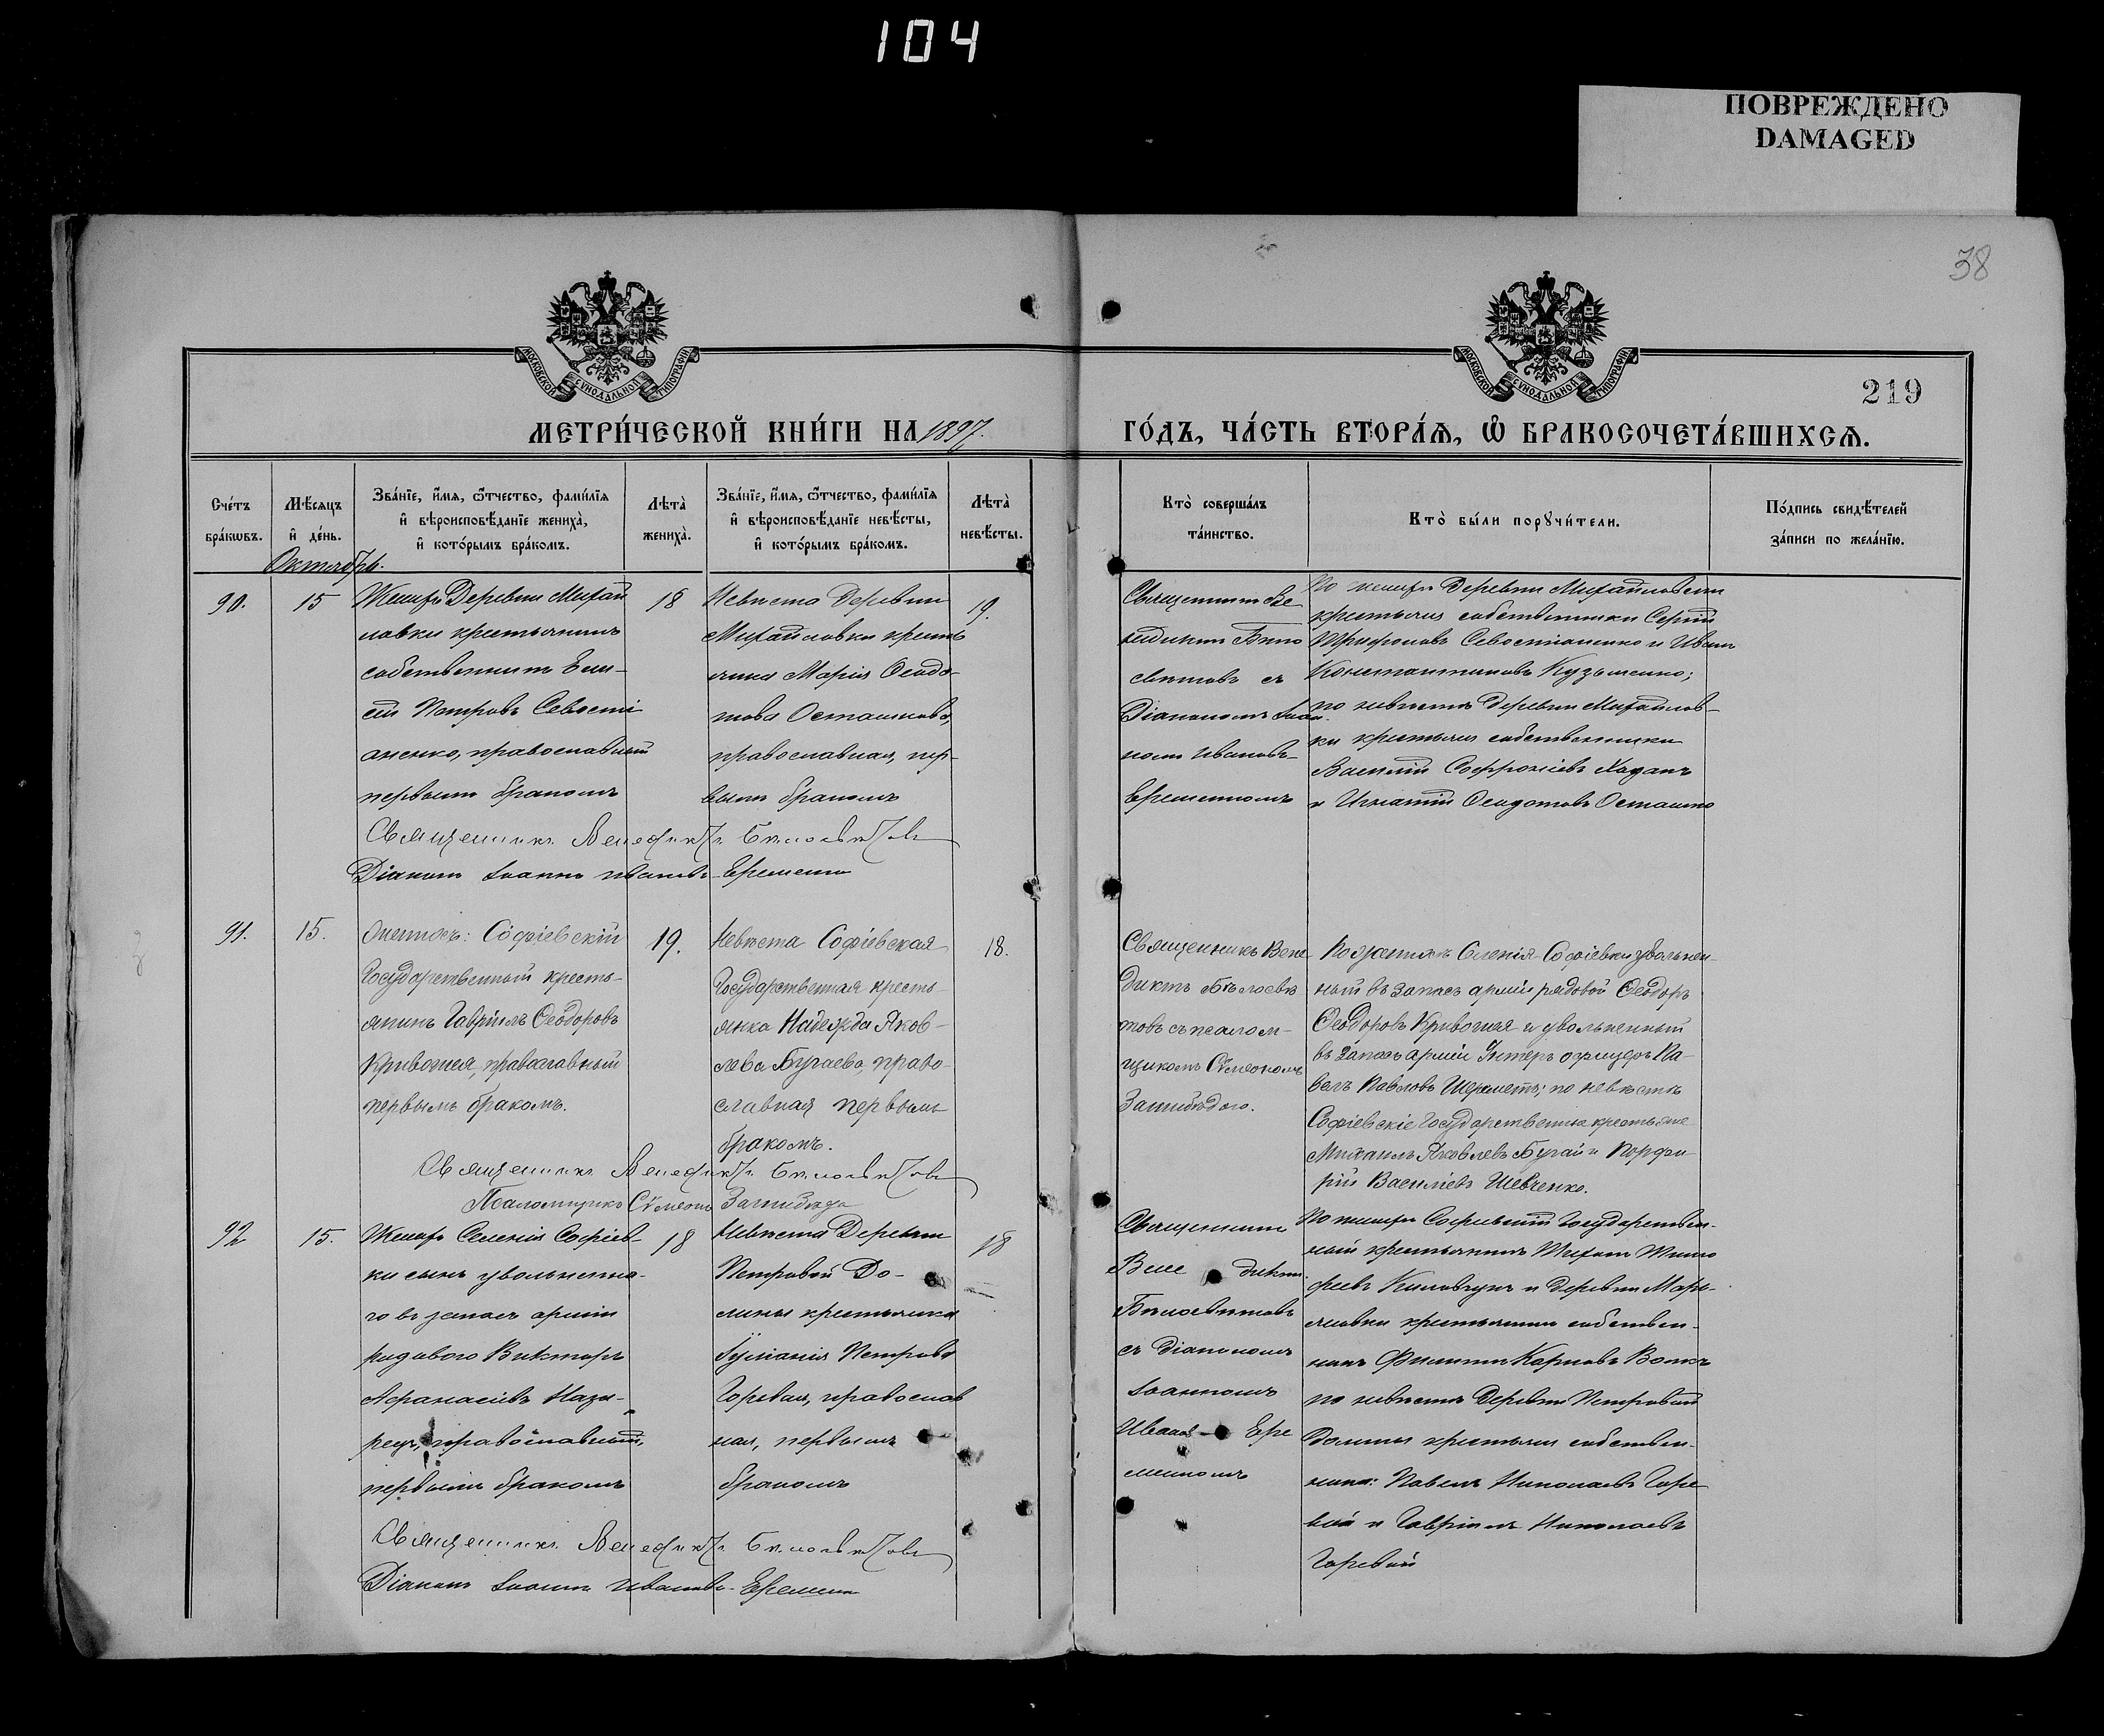 104
ПОВРЕЖДЕНО
DAMAGED
38
МОСКОВСКОЙ СѴНОДАЛЬНОЙ ТИПОГРАФІИ
МОСКОВСКОЙ СѴНОДАЛЬНОЙ ТИПОГРАФІИ
219
МЕТРИ́ЧЕСКОЙ КНИ́ГИ НА 1897.
ГО́ДЪ, ЧА́СТЬ ВТОРА́Ѧ, Ѡ҆ БРАКОСОЧЕТА́ВШИХСѦ.
Сче́тъ
бра́кѡвъ.
Мѣ́сяцъ
и҆ де́нь.
Зва́нїе, и҆́мя, ѻ҆́тчество, фами́лїя
и҆ вѣроисповѣ́данїе жениха̀,
и҆ кото́рымъ бра́комъ.
Лѣта̀
жениха̀.
Зва́нїе, и҆́мя, ѻ҆́тчество, фами́лїя
и҆ вѣроисповѣ́данїе невѣ́сты,
и҆ кото́рымъ бра́комъ.
Лѣта̀
невѣ́сты.
Кто̀ соверша́лъ
та́инство.
Кто̀ бы́ли порꙋчи́тели.
По́дпись свидѣ́телей
за́писи по жела́нїю.
Октябрь.
90.
15
Женихъ Деревни Михай
ловки крестьянинъ
собственникъ Ели-
сей Петровъ Севасті
аненко, православный
первымъ бракомъ
18
Невѣста Деревни
Михайловки кресть
янка Марія Ѳеодо-
това Осташкова,
православная, пер-
вымъ бракомъ
19.
Священникъ Ве
недиктъ Бѣло
свѣтовъ съ
Діакономъ Іоан.
номъ Ивановъ-
Еременкомъ
По женихѣ Деревни Михайловки
крестьяня собственники Сергій
Трифоновъ Севостіаненко и Иванъ
Константиновъ Кузьменко;
по невѣстѣ Деревни Михайлов-
ки крестьяня собственники
Василій Софроніевъ Хаданъ
и Игнатій Ѳеодотовъ Осташко
Священникъ Венедиктъ Бѣлосвѣтовъ
Діаконъ Іоаннъ Ивановъ-Еременко
91.
15.
Женихъ: Софіевскій
Государственный кресть-
янинъ Гавріилъ Ѳеодоровъ
Кривошея, православный
первымъ бракомъ.
19.
Невѣста Софіевская
Государственная кресть-
янка Надежда Яков-
лева Бугаева, право-
славная первымъ
бракомъ.
18.
Священникъ Вене
диктъ Бѣлосвѣ
товъ съ псалом-
щикомъ Сѵмеономъ
По женихѣ Селенія Софіевки уволнен
ный въ запасъ арміи рядовой Ѳеодоръ
Ѳеодоровъ Кривошея и уволненный
въ запасъ арміи Унтеръ офицеръ Па-
велъ Павловъ Шереметъ; по невѣстѣ
Софіевскіе Государственные крестьяне
Михаилъ Яковлевъ Бугай и Порфи
рій Василіевъ Шевченко.
Священникъ Венедиктъ Бѣлосвѣтовъ
Псаломщикъ Сѵмеонъ
92
15.
Женихъ Селенія Софіев-
ки сынъ уволненна-
го въ запасъ арміи
рядового Викторъ
Афанасіевъ Наза-
рец, православный,
первымъ бракомъ
18
Невѣста Деревни
Петровой До-
лины крестьянка
Іуліанія Петрова
Горевая, православ
ная, первымъ
бракомъ
18
Священникъ
Вене диктъ
Бѣлосвѣтовъ
съ Діакономъ
Іоанномъ
Иванов- Ере
менкомъ
По женихѣ Софіевскій Государствен-
ный крестьянинъ Тихонъ Тимо
феевъ и Деревни Марь-
яновки крестьянинъ собствен-
никъ Филиппъ Карповъ Волкъ
по невѣстѣ Деревни Петровой
Долины крестьяня собствен-
ники: Павелъ Николаевъ Горе
вой и Гавріилъ Николаевъ
Горевой
Священникъ Венедиктъ Бѣлосвѣтовъ
Діаконъ Іоаннъ Ивановъ-Еременко